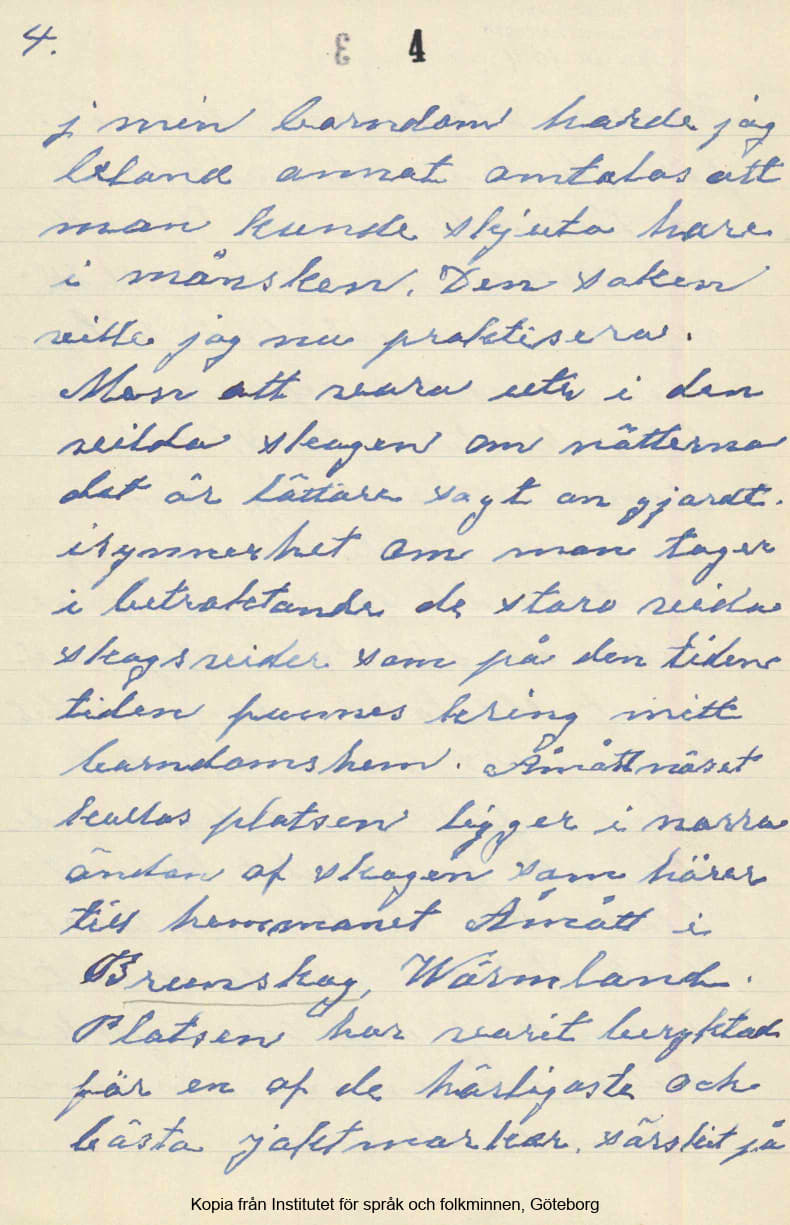 4.
3 4
j min barndom hörde jag
bland annat omtalas att
man kunde skjuta hare
i månsken. Den saken
ville jag nu praktisera.
Men att vara ute i den
vilda skogen om nätterna
det är lättare sagt än gjordt.
isynnerhet om man tager
i betraktande de stora vida
skogsvider som på den tiden
tiden funnes kring mitt
barndomshem. Åmåttnäset
kallas platsen ligger i norra
ändan af skogen som hörer
till hemmanet Åmått i
Brunskog, Wärmland.
Platsen har varit beryktad
för en af de härligaste och
bästa jaktmarker. särskit på
Kopia från Institutet för språk och folkminnen, Göteborg